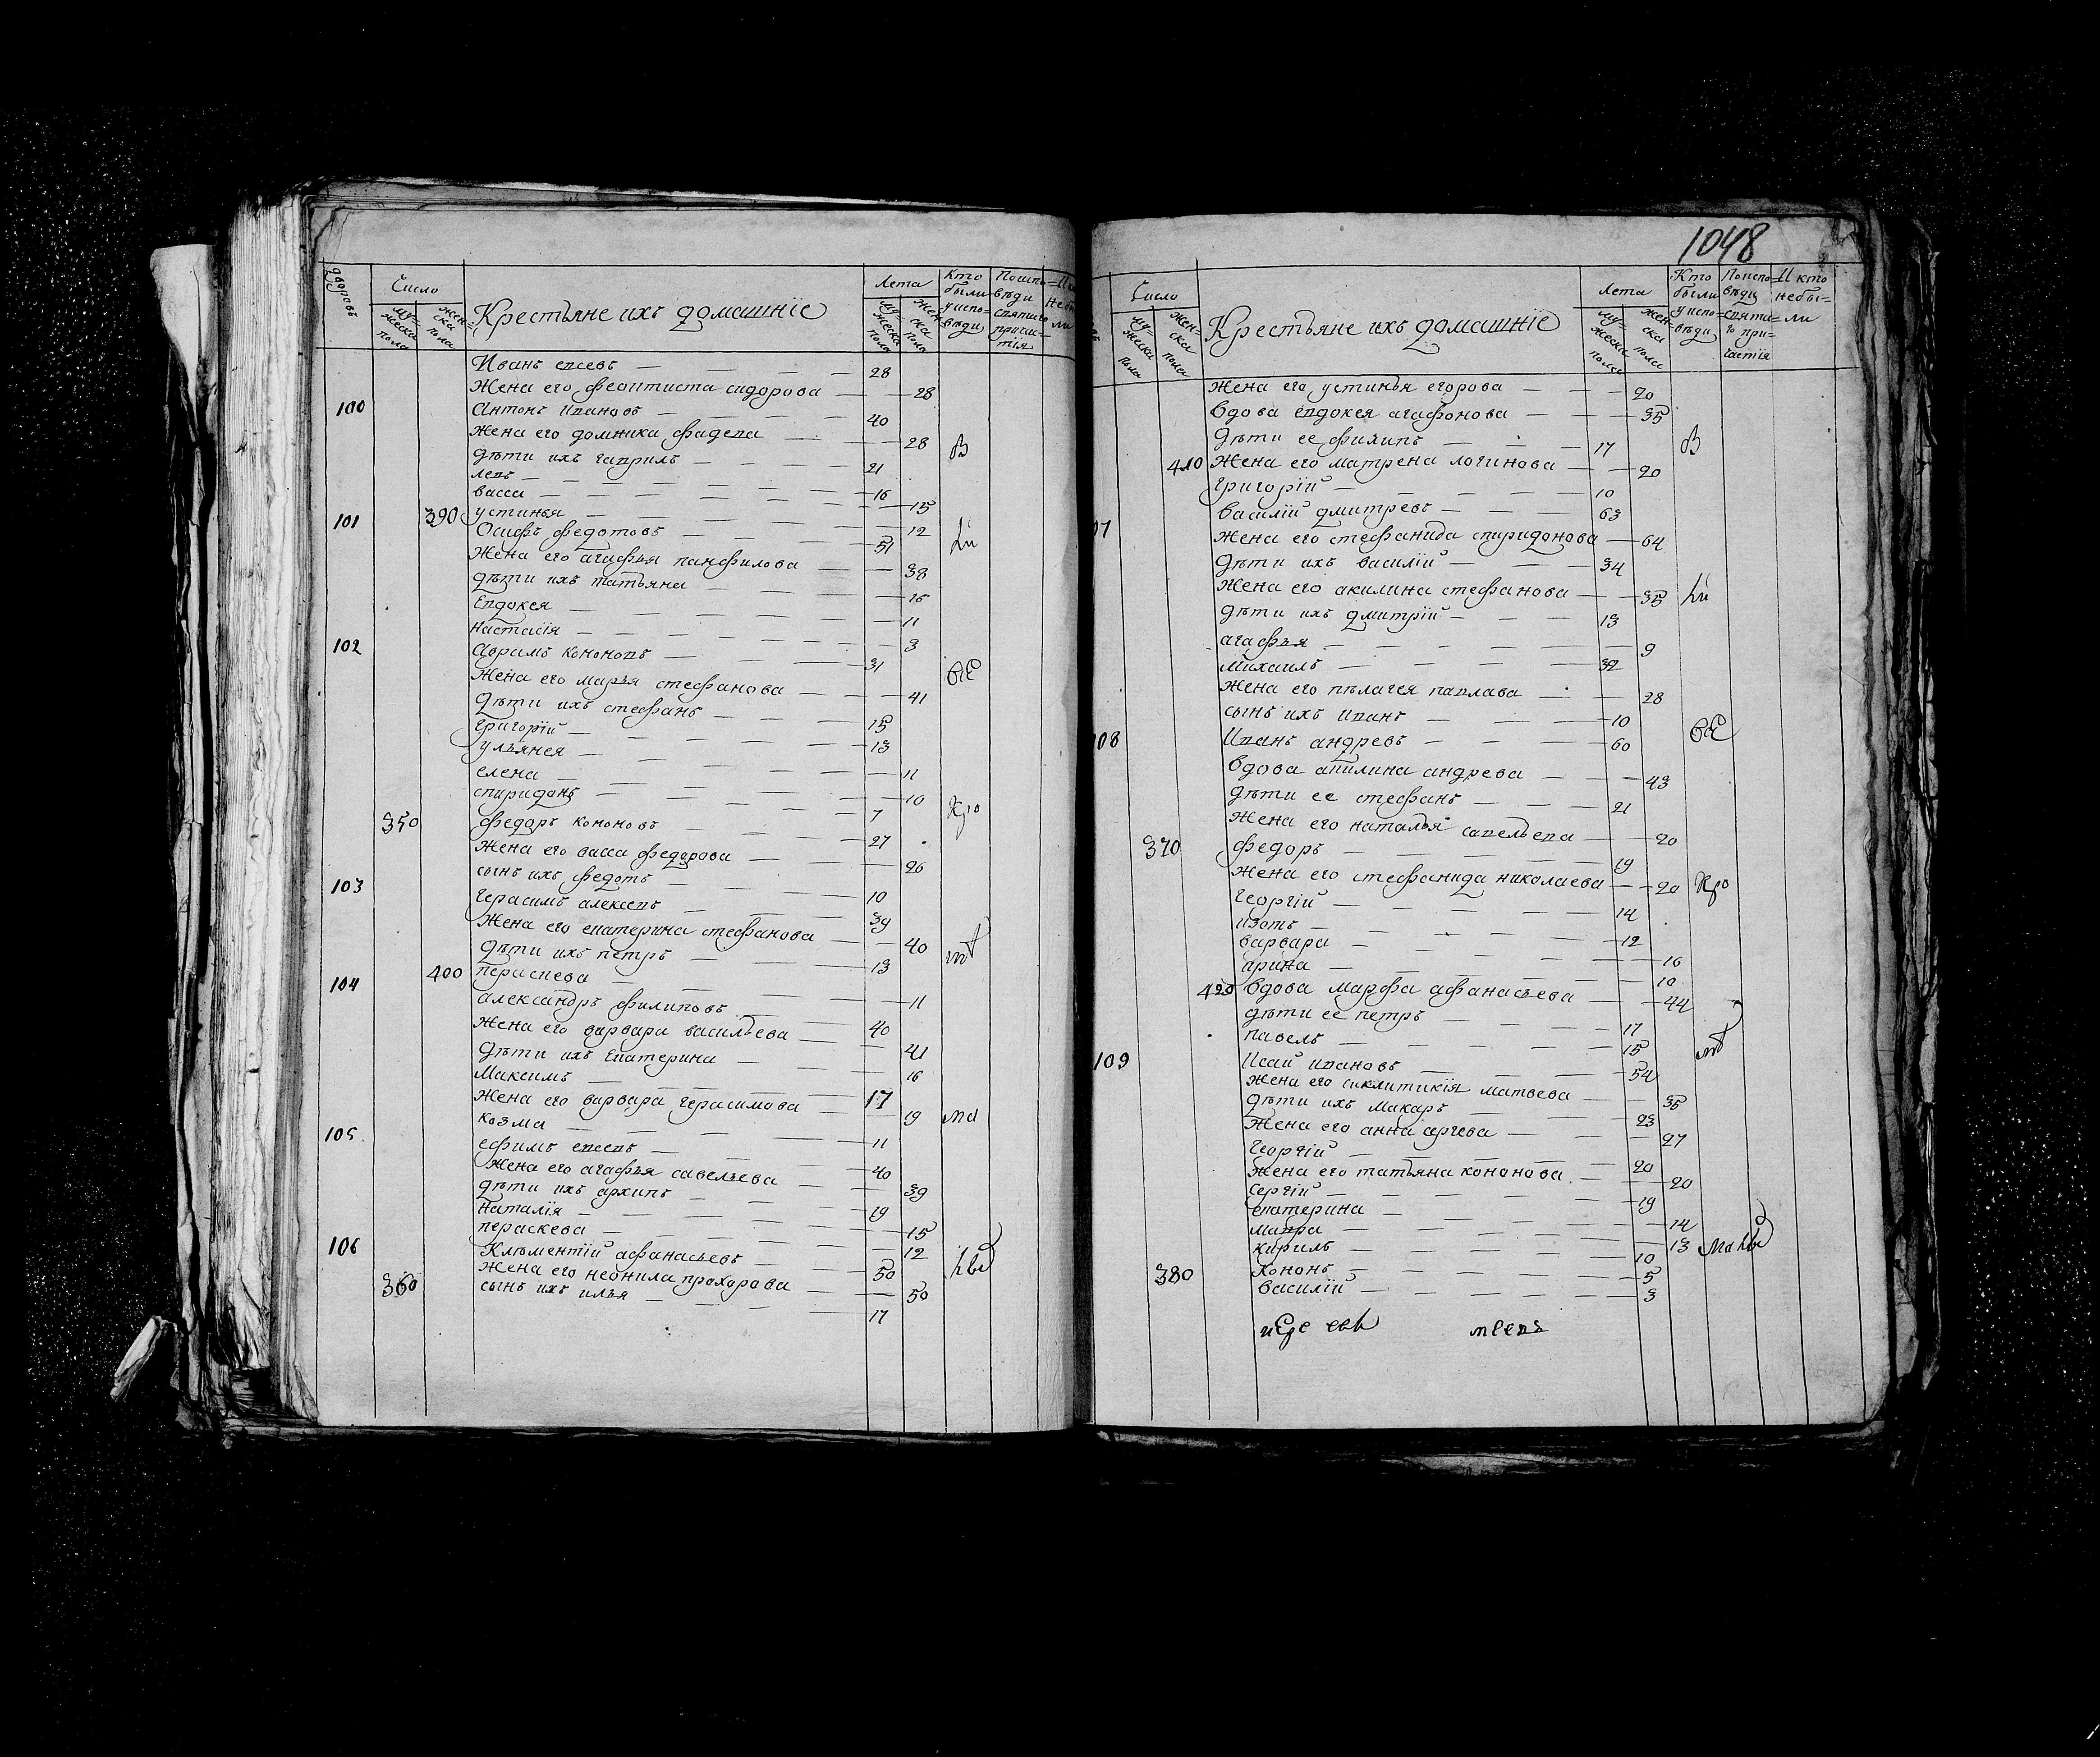 дворовъ Число мужеска пола женска пола Крестьяне ихъ домашнїе Лета мужеска пола женска пола Кто были у исповѣди По исповѣди святаго причастїя
Иванъ евсевъ 28
Жена его феоптиста сидорова 28
100 антонъ ивановъ 40
Жена его домника фадева 28 В
дѣти ихъ гаврилъ 21
левъ 16
васса 15
390 устинья 12
101 Осифъ федотовъ 51
Жена его агафья панфилова 38
дѣти ихъ татьяна 15
Евдокея 11
настасїя 3
102 аврамъ кононовъ 31
Жена его марья стефанова 41
Дѣти ихъ стефанъ 15
григорїй 13
ульянея 11
елена 10
спиридонъ 7
350 федоръ кононовъ 27
Жена его васса федорова 26
сынъ ихъ федотъ 10
103 герасимъ алексевъ 39
Жена его екатерина стефанова 40
дѣти ихъ петръ 13
400 пераскева 11
104 александръ филиповъ 40
Жена его варвара васильева 41
дѣти ихъ Екатерина 16
Максимъ 17
Жена его варвара герасимова 19
козма 11
105 ефимъ евсевъ 40
Жена его агафья савельева 39
дѣти ихъ архипъ 19
наталїя 15
пераскева 12
106 Клѣментїй афанасьевъ 50
Жена его неонила прохорова 50
360 сынъ ихъ илья 17
1048
Число мужеска пола женска пола Крестьяне ихъ домашнїе Лета мужеска пола женска пола Кто были у исповѣди По исповѣди святаго причастїя И кто небыли
Жена его устинья егорова 20
вдова евдокея агафонова 35
дѣти ее филипъ 17 В
410 Жена его матрена логинова 20
григорїй 10
07 василїй дмитревъ 63
Жена его стефанида спиридонова 64
дѣти ихъ василїй 34
Жена его акилина стефанова 35
дѣти ихъ дмитрїй 13
агафья 9
михаилъ 32
Жена его пѣлагея павлава 28
сынъ ихъ иванъ 10
08 Иванъ андревъ 60
вдова акилина андрева 43
дѣти ее стефанъ 21
Жена его наталья савельева 20
370 федоръ 19
Жена его стефанида николаева 20
георгїй 14
изотъ 12
варвара 16
арина 10
420 вдова марфа афанасьева 44
дѣти ее петръ 17
павелъ 15
109 Исай ивановъ 54
Жена его сиклитикїя матвева 35
дѣти ихъ Макаръ 23
Жена его анна сергева 27
георгїй 20
Жена его татьяна кононова 20
Сергїй 19
екатерина 14
мавра 13
кирилъ 10
кононъ 5
380 василїй 3